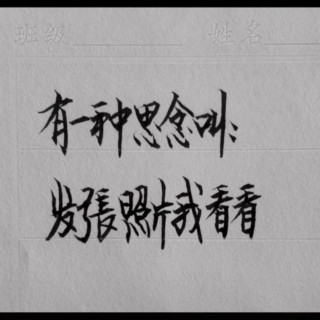 班级 姓名
有一种思念叫:
发張照片我看看